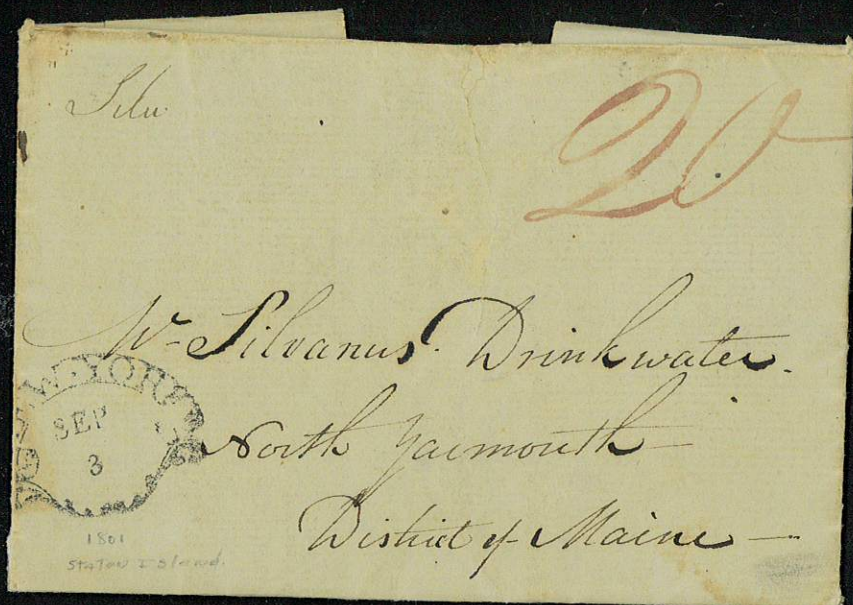 Silv
20
Mr Silvanus Drinkwater.
North Yarmouth
District of Maine
NEW-YORK
SEP
3
1801
Staten Island.